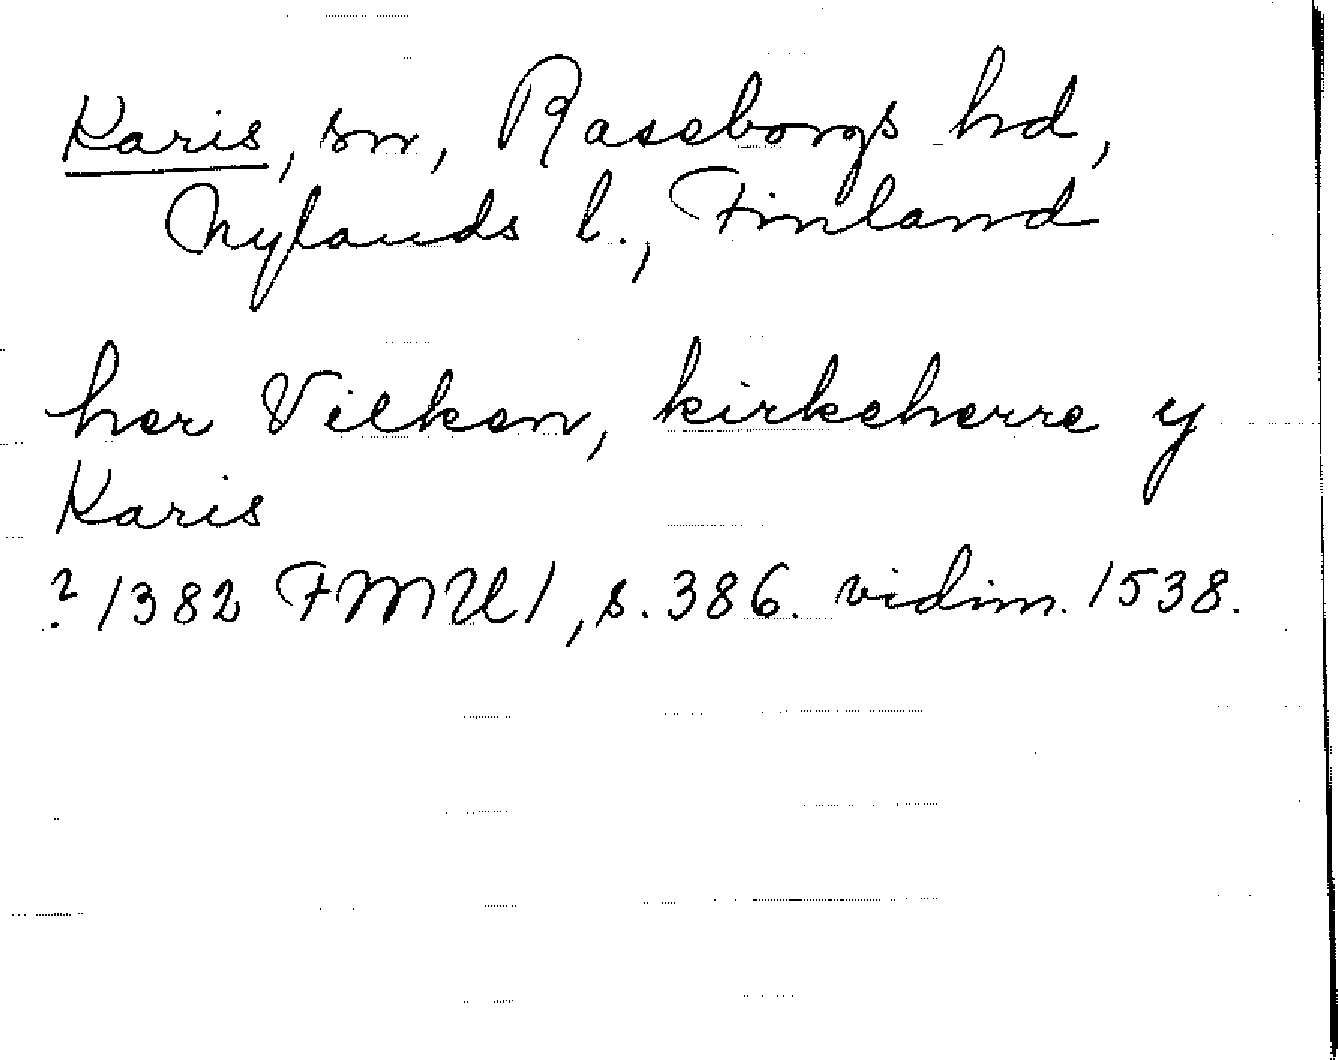 Karis, sn, Raseborgs hd,
Nylands l., Finland
her Vilken, kirkeherre y
Karis
? 1382 FMU 1, s. 386. vidim. 1538.